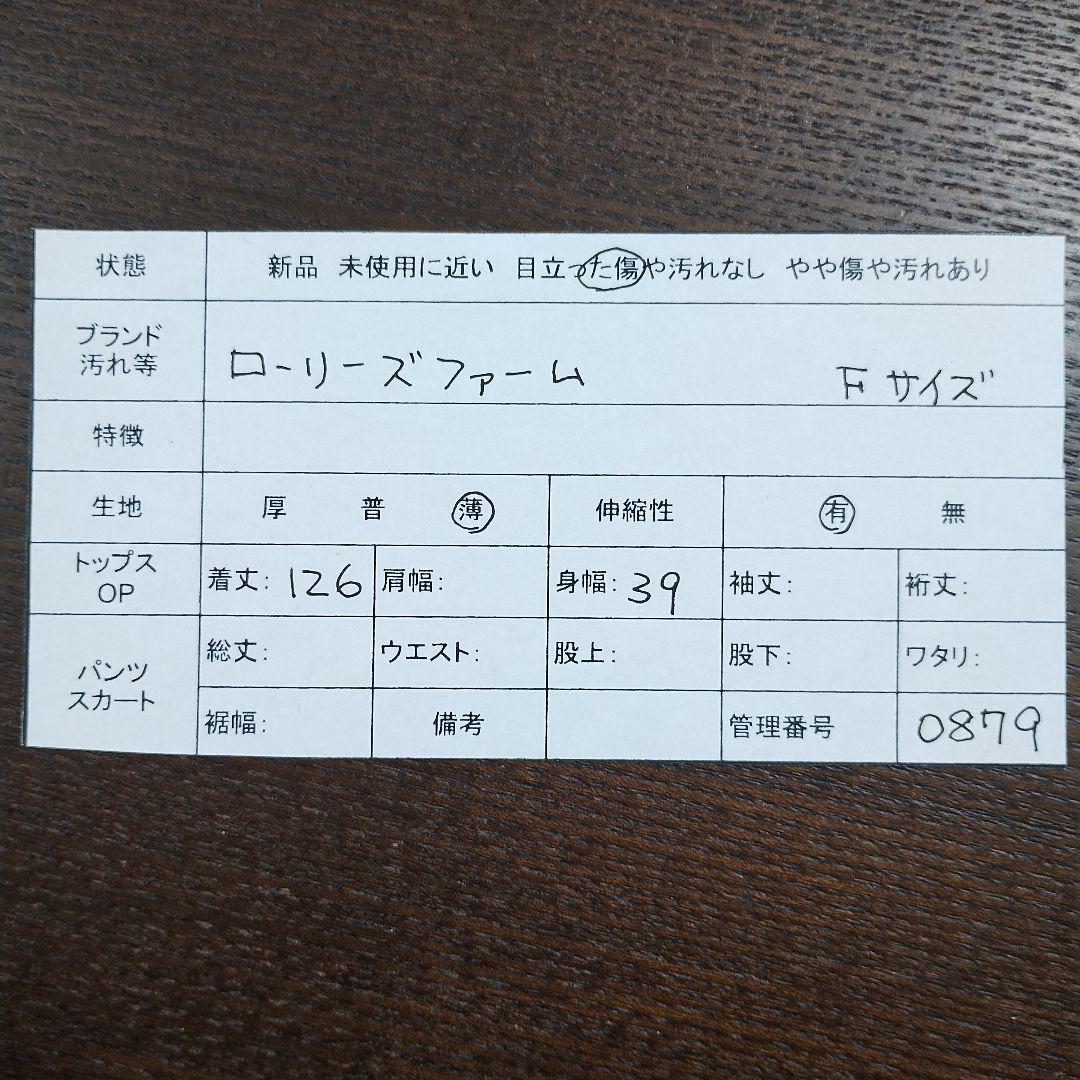 状態 新品 未使用に近い 目立った傷や汚れなし やや傷や汚れあり
ブランド
汚れ等 ローリーズファーム Fサイズ
特徴
生地 厚 普 薄 伸縮性 有 無
トップス
OP 着丈: 126 肩幅: 身幅: 39 袖丈: 裄丈:
パンツ
スカート 総丈: ウエスト: 股上: 股下: ワタリ:
裾幅: 備考 管理番号 0879